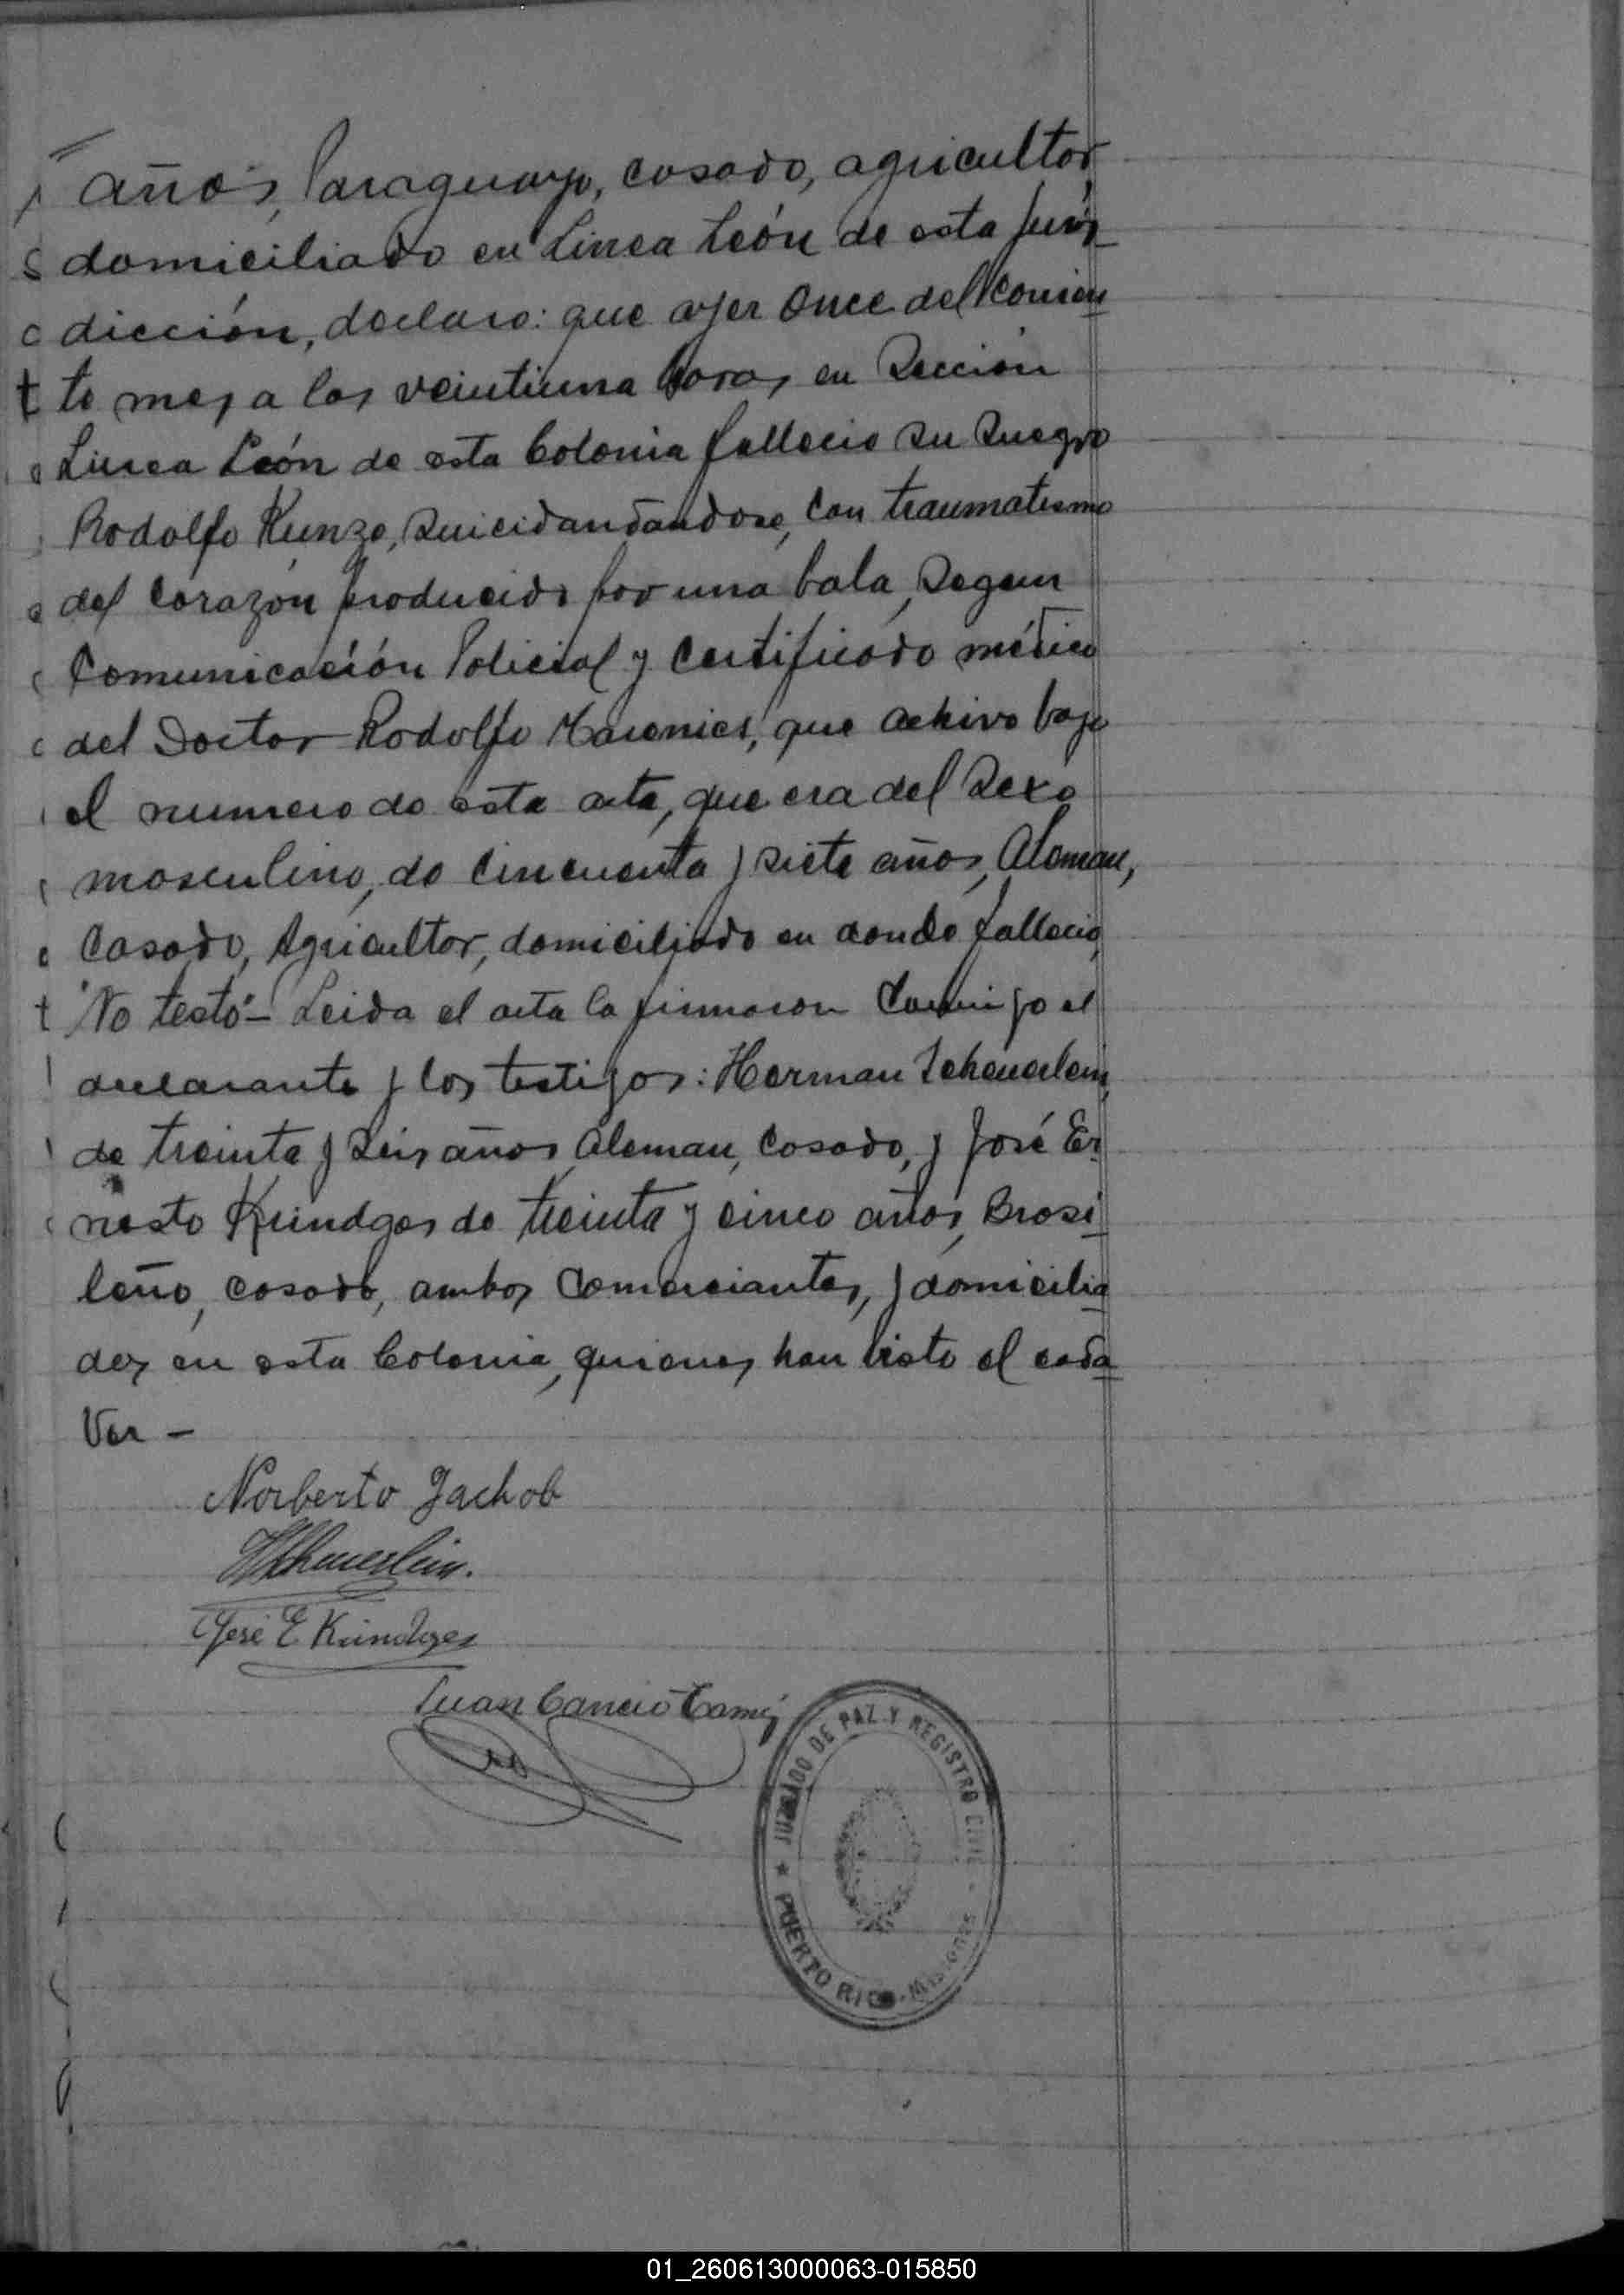 años, Paraguayo, casado, agricultor,
domiciliado en Linea León de esta juris
dicción, declaro: que ayer once del corrien
te mes a las veintiuna horas en Sección
Linea León de esta Colonia fallecio su suegro
Rodolfo Kunze, suicidandandose, con traumatismo
del corazón producido por una bala, segun
Comunicación Policial y certificado médico
del Doctor Rodolfo que achivo bajo
el numero de esta acta, que era del sexo
masculino, de cincuenta y siete años, Aleman,
casado, Agricultor, domiciliado en donde fallecio,
"No testó"- Leida el acta la firmaron conmigo el
declarante y los testigos: Herman Scheuerlein,
de treinta y seis años, Aleman, casado, y José Er
nesto Kündges de treinta y cinco años, Brasi
leño, casado, ambos Comerciantes, y domicilia
dos en esta Colonia, quienes han visto el cada
ver -
Norberto Jachob
HScheuerlein.
José E Kündges
Juan Cancio
JUZGADO DE PAZ Y REGISTRO CIVIL
PUERTO RICO - MISIONES
01_260613000063-015850